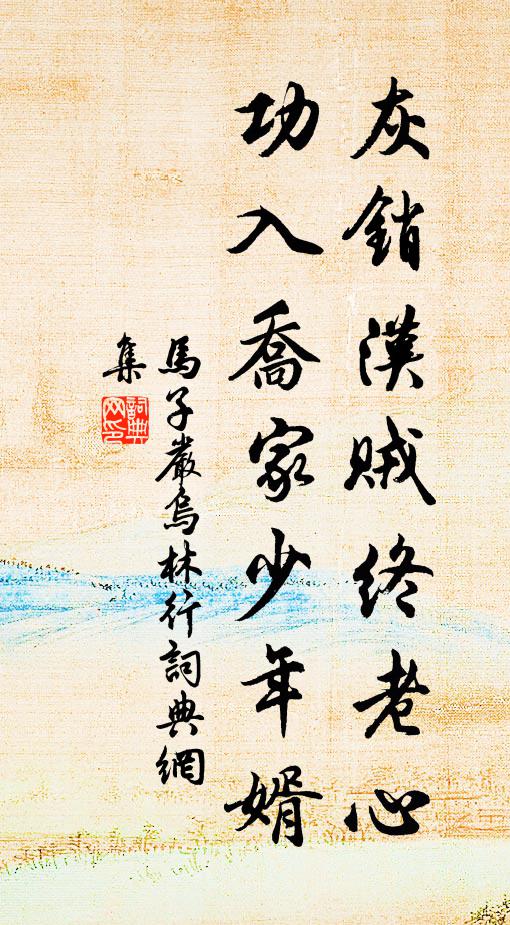 灰銷漢賊終老心
功入喬家少年婿
馬子嚴烏林行詞典網
集
詞典網印